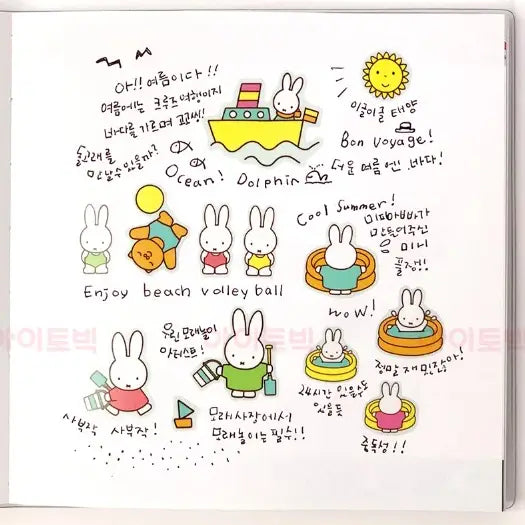 아!! 여름이다!!
여름에는 크루즈 여행이지
바다를 가르며 고고씽!
돌고래를
만날수 있을까?
Ocean! Dolphin
이글이글 태양
Bon Voyage!
더운 여름엔 바다!
Cool Summer!
미피아빠가
만들어주신
미니
풀장!!
Enjoy beach volley ball
WOW!
정말 재밌잖아!
우린 모래놀이
아티스트!
24시간 있을수도
있을듯
중독성!!
사부작 사부작!
모래사장에서
모래놀이는 필수!!
아이토빅
아이토빅
아이토빅